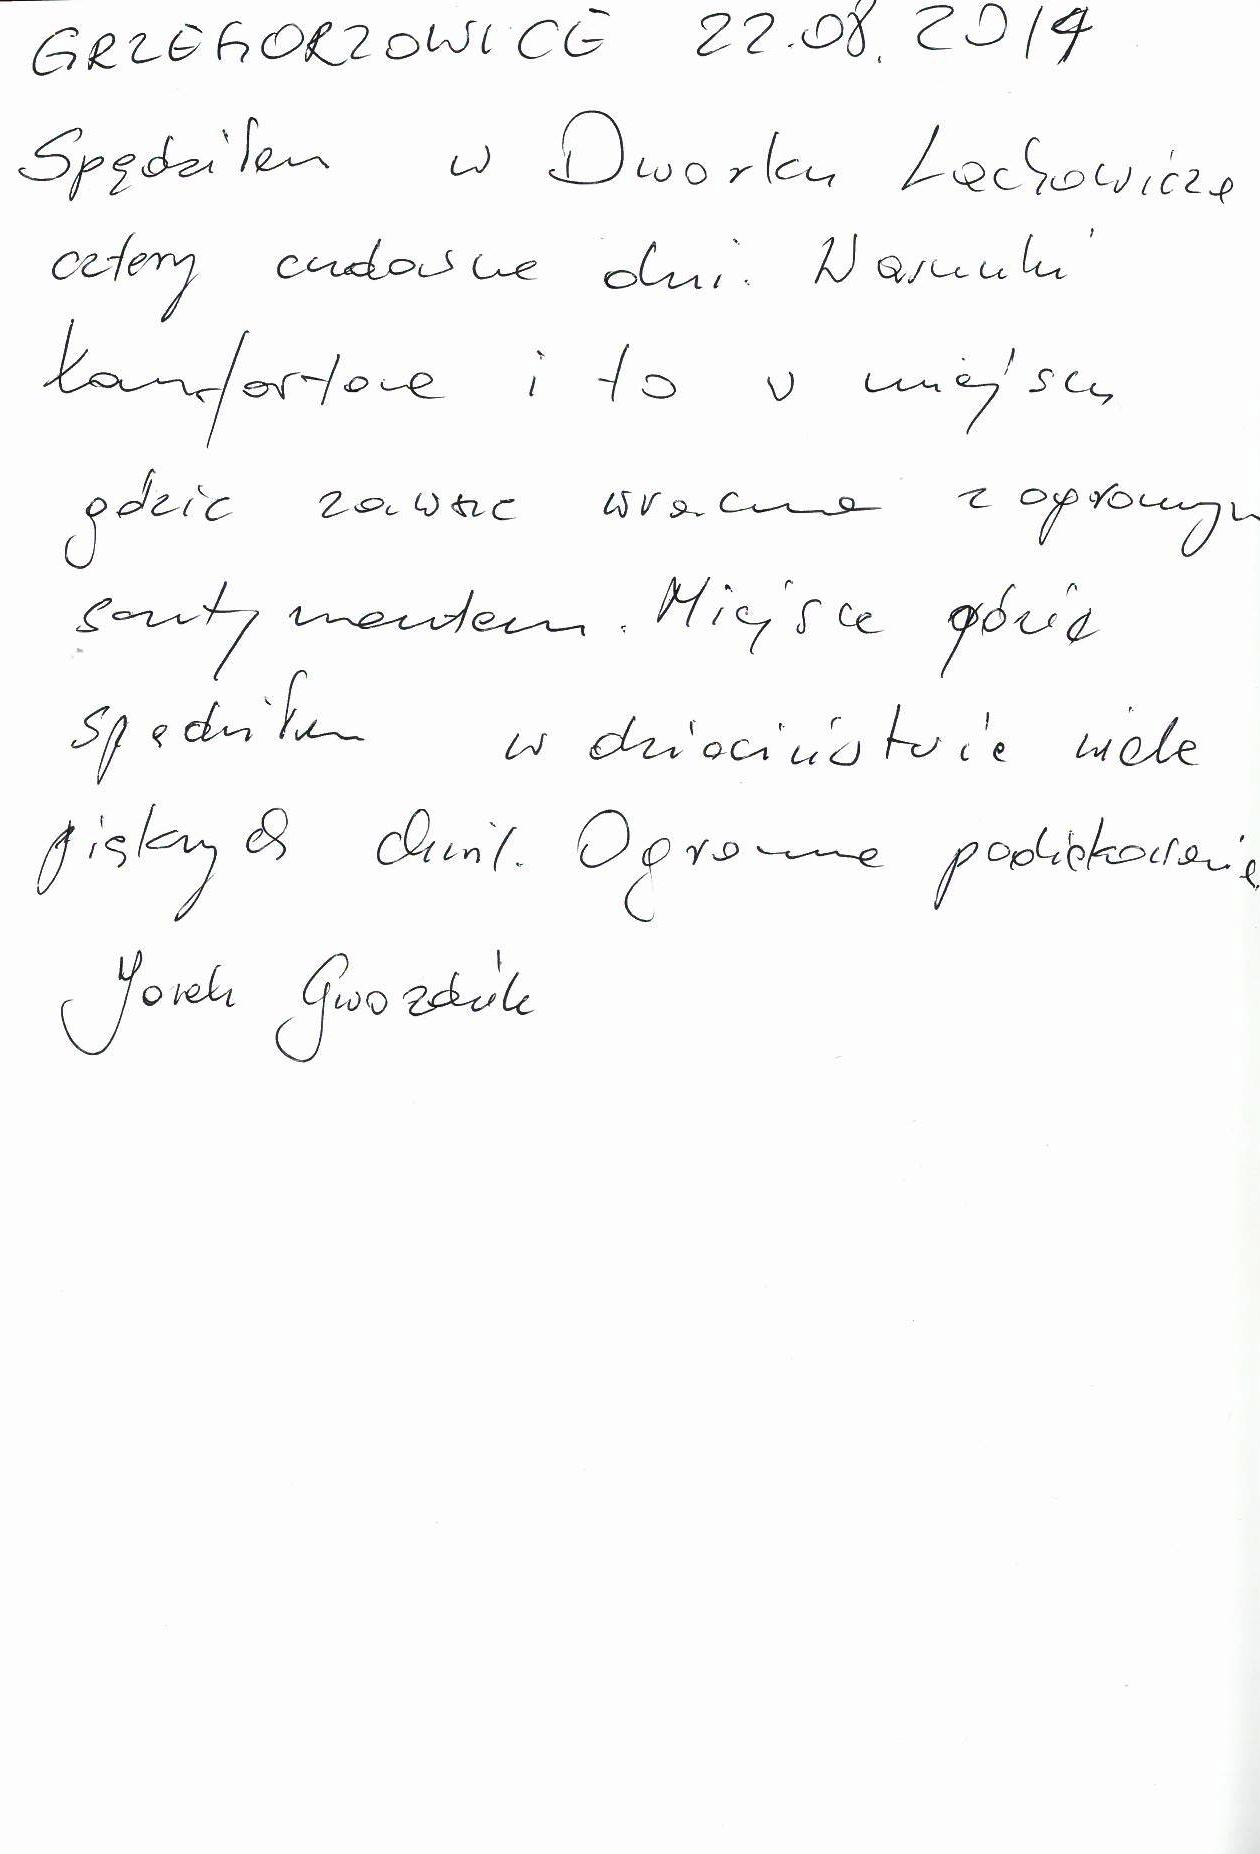 GRZEGORZOWICE 22.08.2014
Spędziłem w Dworku Lachowicze
cztery cudowne dni. Warunki
komfortowe i to w miejscu
gdzie zawsze wracam z ogromnym
sentymentem. Miejsce gdzie
spędziłem w dzieciństwie wiele
pięknych chwil. Ogromne podziękowanie
Jorek Gwozdzik